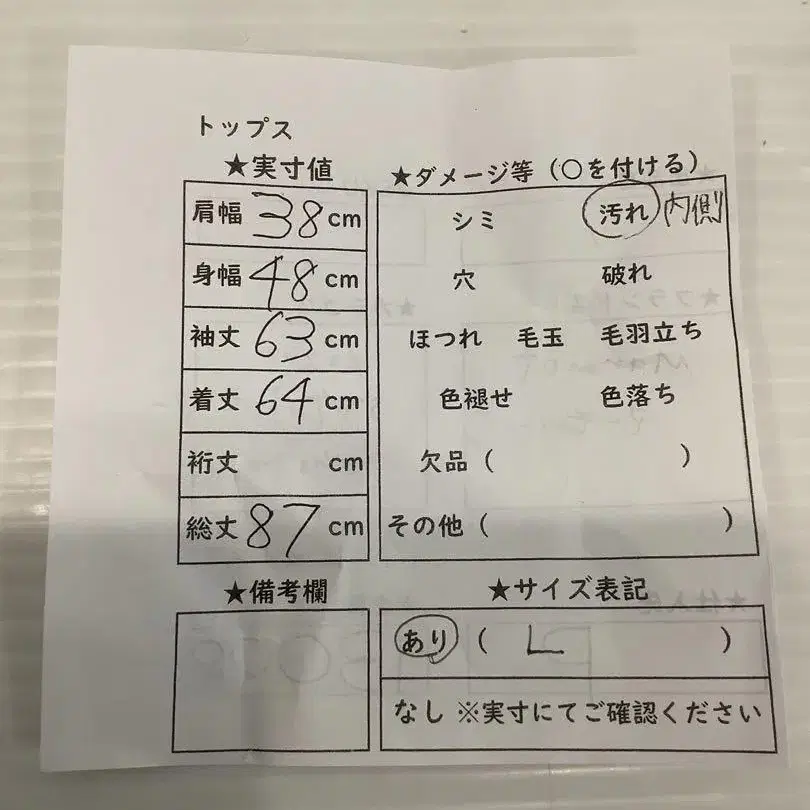 トップス
★実寸値
肩幅 38 cm
身幅 48 cm
袖丈 63 cm
着丈 64 cm
裄丈 cm
総丈 87 cm
★ダメージ等（○を付ける）
シミ 汚れ 内側
穴 破れ
ほつれ 毛玉 毛羽立ち
色褪せ 色落ち
欠品（ ）
その他（ ）
★備考欄
★サイズ表記
あり（ L ）
なし ※実寸にてご確認ください